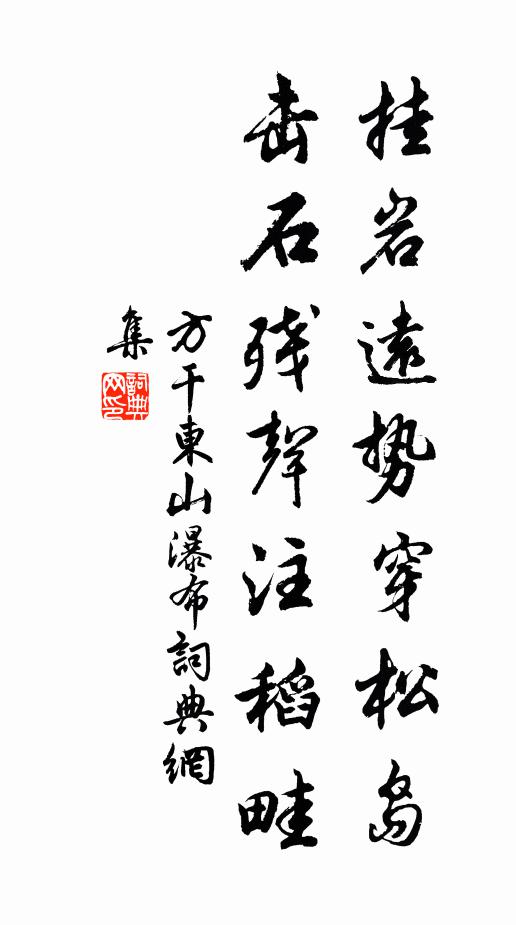 挂岩遠势穿松島
击石残聲注稻畦
方干東山瀑布詞典網
集
詞典网印